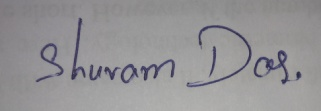 Shuvam Das.